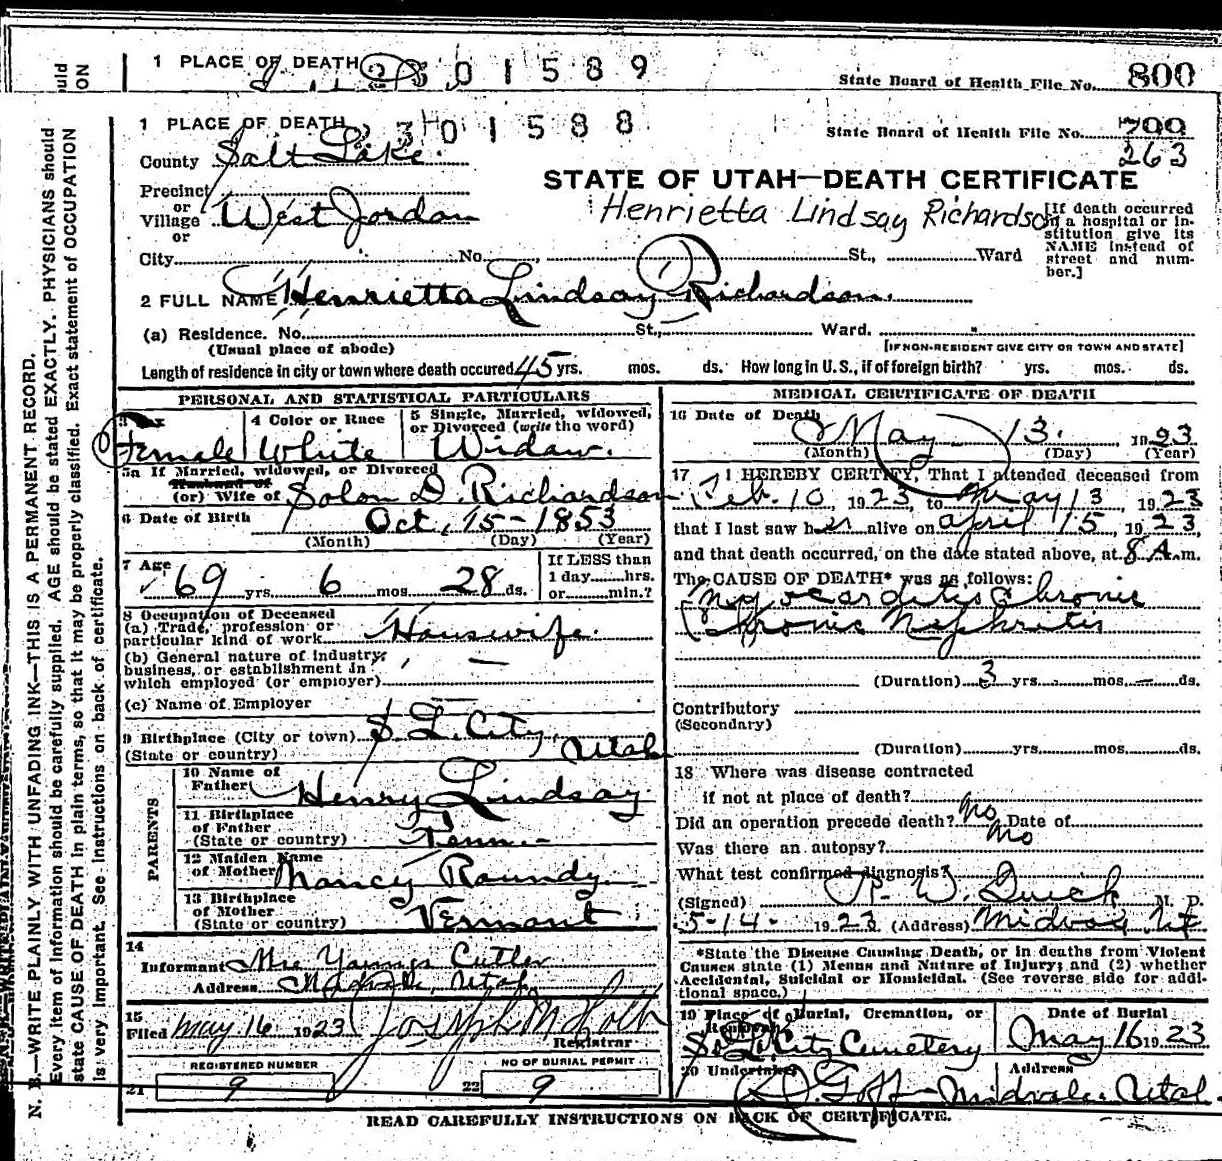 1 PLACE OF DEATH 2301589
State Board of Health File No. 800
1 PLACE OF DEATH 2301588
State Board of Health File No. 799
263
County Salt Lake.
STATE OF UTAH—DEATH CERTIFICATE
Precinct
or
Village West Jordan
or
Henrietta Lindsay Richardson
[If death occurred in a hospital or institution give its NAME instead of street and number.]
City No. St., Ward
2 FULL NAME Henrietta Lindsay Richardson.
(a) Residence. No. St., Ward.
(Usual place of abode) [IF NON-RESIDENT GIVE CITY OR TOWN AND STATE]
Length of residence in city or town where death occured 45 yrs. mos. ds. How long in U. S., if of foreign birth? yrs. mos. ds.
PERSONAL AND STATISTICAL PARTICULARS
3 Sex
Female
4 Color or Race
White
5 Single, Married, widowed,
or Divorced (write the word)
Widow.
5a If Married, widowed, or Divorced
Husband of
(or) Wife of Solon D. Richardson
6 Date of Birth Oct, 15-1853
(Month) (Day) (Year)
7 Age
69 yrs 6 mos. 28 ds.
If LESS than
1 day......hrs.
or......min.?
8 Occupation of Deceased
(a) Trade, profession or
particular kind of work Housewife.
(b) General nature of industry,
business, or establishment in
which employed (or employer) —
(c) Name of Employer
9 Birthplace (City or town) S. L. City,
(State or country) Utah
PARENTS
10 Name of
Father Henry Lindsay
11 Birthplace
of Father
(State or country) Tenn.-
12 Maiden Name
of Mother Nancy Roundy.
13 Birthplace
of Mother
(State or country) Vermont
14
Informant Mrs Cutler
Address Midvale, Utah,
15
Filed May 16 1923 Joseph M Holt
Registrar
REGISTERED NUMBER
21 9
NO OF BURIAL PERMIT
22 9
MEDICAL CERTIFICATE OF DEATH
16 Date of Death
May 13. 1923
(Month) (Day) (Year)
17 I HEREBY CERTIFY, That I attended deceased from
Feb. 10, 1923, to May 13, 1923
that I last saw her alive on April 15, 1923,
and that death occurred, on the date stated above, at 8 A.m.
The CAUSE OF DEATH* was as follows:
Myocarditis Chronic
Chronic Nephritis
(Duration) 3 yrs. mos. — ds.
Contributory
(Secondary)
(Duration) yrs. mos. ds.
18 Where was disease contracted
if not at place of death?
Did an operation precede death? No Date of
Was there an autopsy? No
What test confirmed diagnosis?
(Signed) P. W. Quick M. D.
5-14- 1923 (Address) Midvale Ut
*State the Disease Causing Death, or in deaths from Violent
Causes state (1) Means and Nature of Injury; and (2) whether
Accidental, Suicidal or Homicidal. (See reverse side for addi-
tional space.)
19 Place of Burial, Cremation, or
Removal
S. L. City Cemetery
Date of Burial
May 16 1923
20 Undertaker
Goff
Address
Midvale Utah.
READ CAREFULLY INSTRUCTIONS ON BACK OF CERTIFICATE.
N. B.—WRITE PLAINLY WITH UNFADING INK—THIS IS A PERMANENT RECORD.
Every item of information should be carefully supplied. AGE should be stated EXACTLY. PHYSICIANS should
state CAUSE OF DEATH in plain terms, so that it may be properly classified. Exact statement of OCCUPATION
is very important. See instructions on back of certificate.
uld
ON